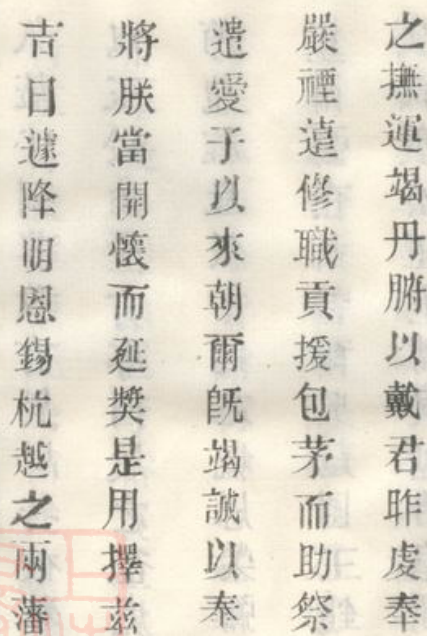 之撫運竭丹腑以戴君昨虔奉
嚴禋遠修職貢援包茅而助祭
遣愛子以來朝爾旣竭誠以奉
將朕當開懷而延奬是用擇玆
吉日遽降明恩錫杭越之兩藩